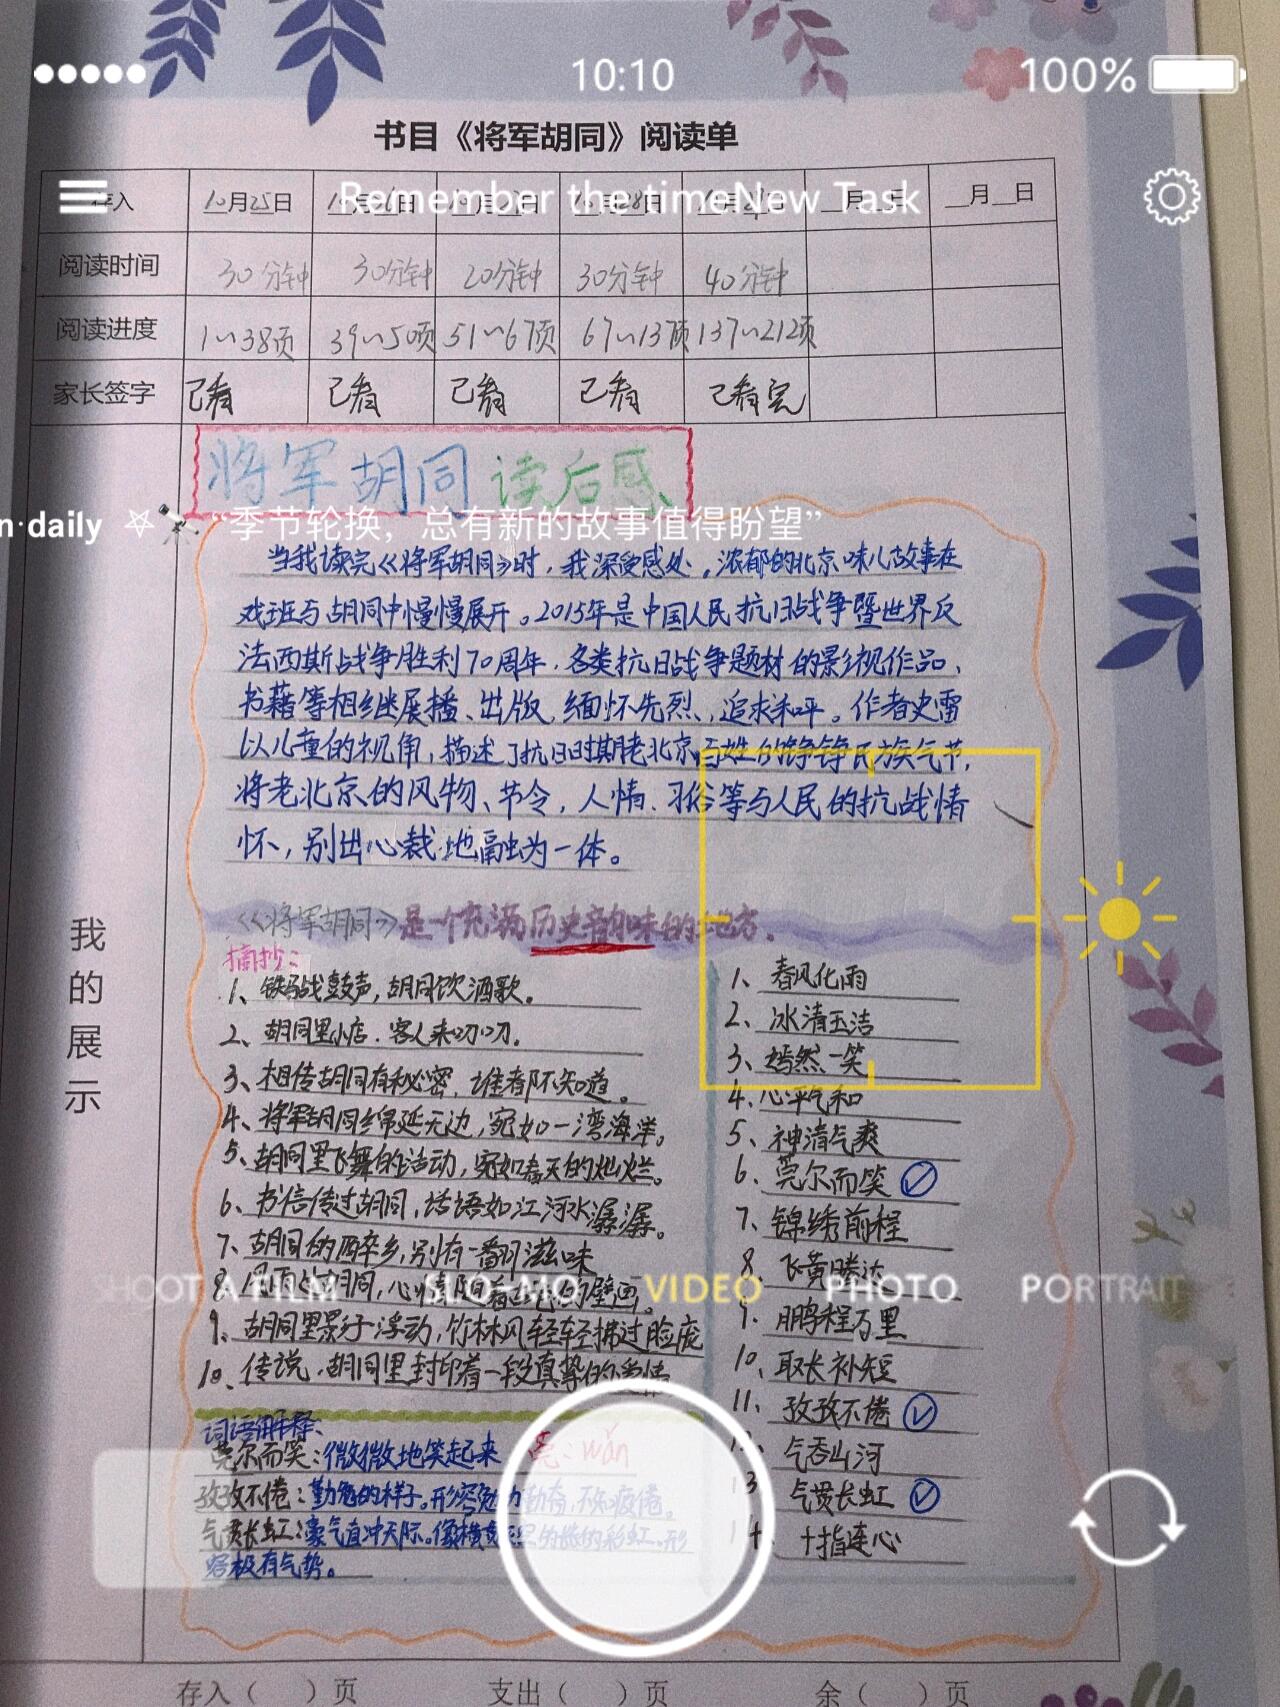 10:10
100%
书目《将军胡同》阅读单
Remember the timeNew Task
存入 10月25日 月 日 月 日 28日 月 日 月 日 月 日
阅读时间 30分钟 30分钟 20分钟 30分钟 40分钟
阅读进度 1~38页 39~50页 51~67页 67~137页 137~212页
家长签字 已看 已看 已看 已看 已看完
将军胡同读后感
n·daily “季节轮换，总有新的故事值得盼望”
当我读完《将军胡同》时，我深受感处，浓郁的北京味儿故事在
戏班与胡同中慢慢展开。2015年是中国人民抗日战争暨世界反
法西斯战争胜利70周年，各类抗日战争题材的影视作品、
书籍等相继展播、出版，缅怀先烈、追求和平。作者史雷
以儿童的视角，描述了抗日时期老北京百姓的铮铮民族气节，
将老北京的风物、节令，人情、习俗等与人民的抗战情
怀，别出心裁地融为一体。
《将军胡同》是一个充满历史韵味的地方.
我的展示
摘抄：
1、铁马战鼓声，胡同饮酒歌。
2、胡同里小店，客人来叨叨.
3、相传胡同有秘密，谁都不知道。
4、将军胡同绵延无边，宛如一湾海洋。
5、胡同里飞舞的活动，宛如春天的灿烂。
6、书信传过胡同，话语如江河水潺潺。
7、胡同的醉乡，别有一番滋味
8、风雨战胡同，心情 的壁画。
9、胡同里影子浮动，竹林风轻轻拂过脸庞
10、传说，胡同里封印着一段真挚的爱情
1、春风化雨
2、冰清玉洁
3、嫣然一笑
4、心平气和
5、神清气爽
6、莞尔而笑
7、锦绣前程
8、飞黄腾达
9、鹏程万里
10、取长补短
11、孜孜不倦
12、气吞山河
13、气贯长虹
14、十指连心
SHOOT A FILM SLO-MO VIDEO PHOTO PORTRAIT
词语解释：
莞尔而笑：微微地笑起来 莞：wǎn
孜孜不倦：勤勉的样子。形容勉力勤奋，不知疲倦。
气贯长虹：豪气直冲天际。像横贯 的彩虹。形
容极有气势。
存入（ ）页 支出（ ）页 余（ ）页